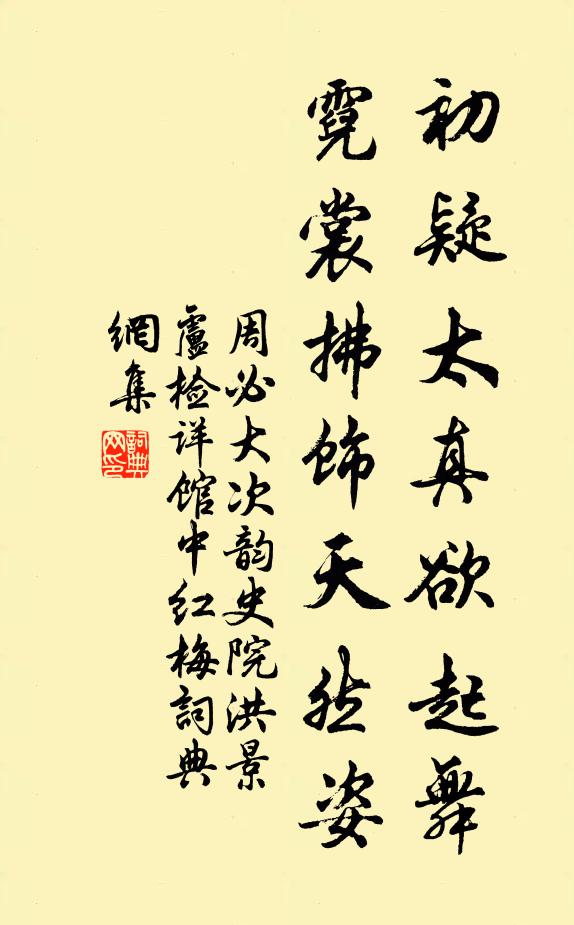 初疑太真欲起舞
霓裳拂饰天然姿
周必大次韵史院洪景
卢检详馆中红梅詞典
網集
詞典網印